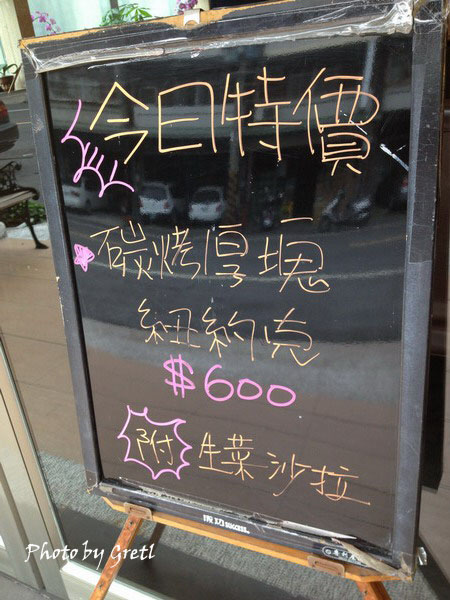 今日特價
碳烤厚塊
紐約克
$600
附 生菜沙拉
成功 SUCCESS
Photo by Gretl